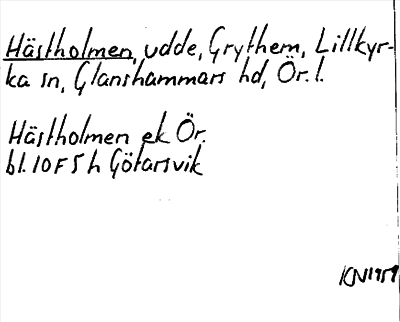 Hästholmen, udde, Grythem, Lillkyr-
ka sn, Glanshammars hd, Ör. l.
Hästholmen ek Ör.
bl. 10 F 5 h Götarsvik
KN 1959